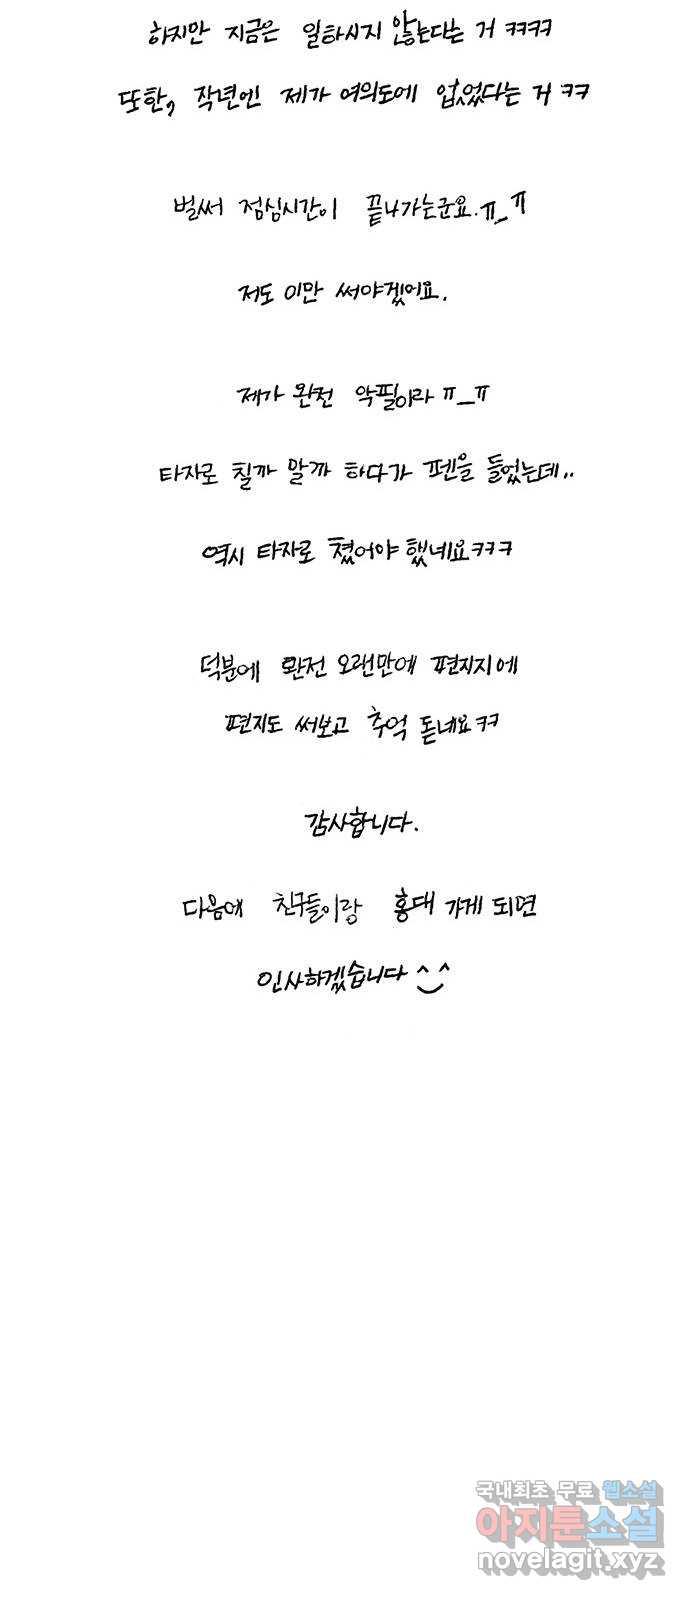 하지만 지금은 일하시지 않는다는 거 ㅋㅋㅋㅋ
또한, 작년엔 제가 여의도에 없었다는 거 ㅋㅋ
벌써 점심시간이 끝나가는군요.ㅠ_ㅠ
저도 이만 써야겠어요.
제가 완전 악필이라 ㅠ_ㅠ
타자로 칠까 말까 하다가 펜을 들었는데..
역시 타자로 쳤어야 했네요ㅋㅋㅋ
덕분에 완전 오랜만에 편지지에
편지도 써보고 추억 돋네요ㅋㅋ
감사합니다.
다음에 친구들이랑 홍대 가게 되면
인사하겠습니다 ^‿^
국내최초 무료 웹소설
아지툰소설
novelagit.xyz